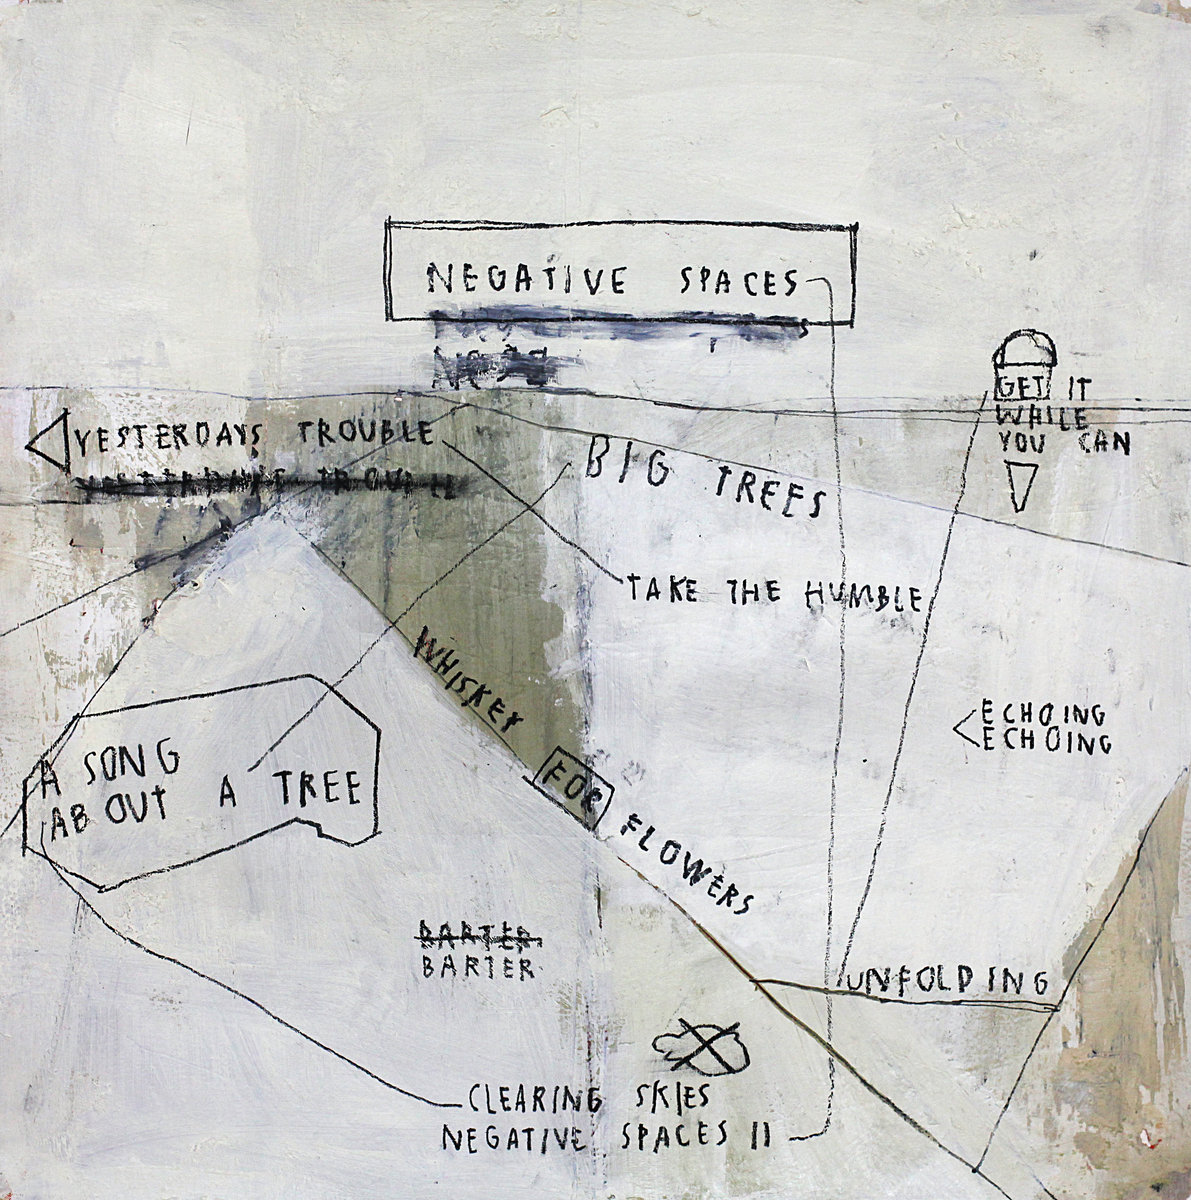 NEGATIVE SPACES
GET IT
WHILE
YOU CAN
YESTERDAYS TROUBLE
YESTERDAYS TROUBLE
BIG TREES
TAKE THE HUMBLE
WHISKEY
FOR
FLOWERS
ECHOING
ECHOING
A SONG
ABOUT A TREE
BARTER
BARTER
UNFOLDING
CLEARING SKIES
NEGATIVE SPACES II